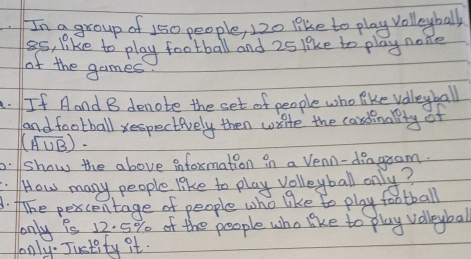 In a group of 150 people, 120 like to play Volleyball,
85, like to play football and 25 like to play none
of the games.
a. If A and B denote the set of people who like volleyball
and football respectively then write the cardinality of
(A∪B).
b. Show the above information in a Venn-diagram.
c. How many people like to play Volleyball only?
d. The percentage of people who like to play football
only is 12.5% of the people who like to play volleyball
only. Justify it.